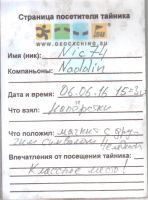 Страница посетителя тайника
WWW.GEOCACHING.SU
Имя (ник): Nict
Компаньоны: Naddlin
Дата и время: 06.06.14 15=
Что взял:
Что положил: магнит с
символом
Впечатления от посещения тайника:
Классное место!